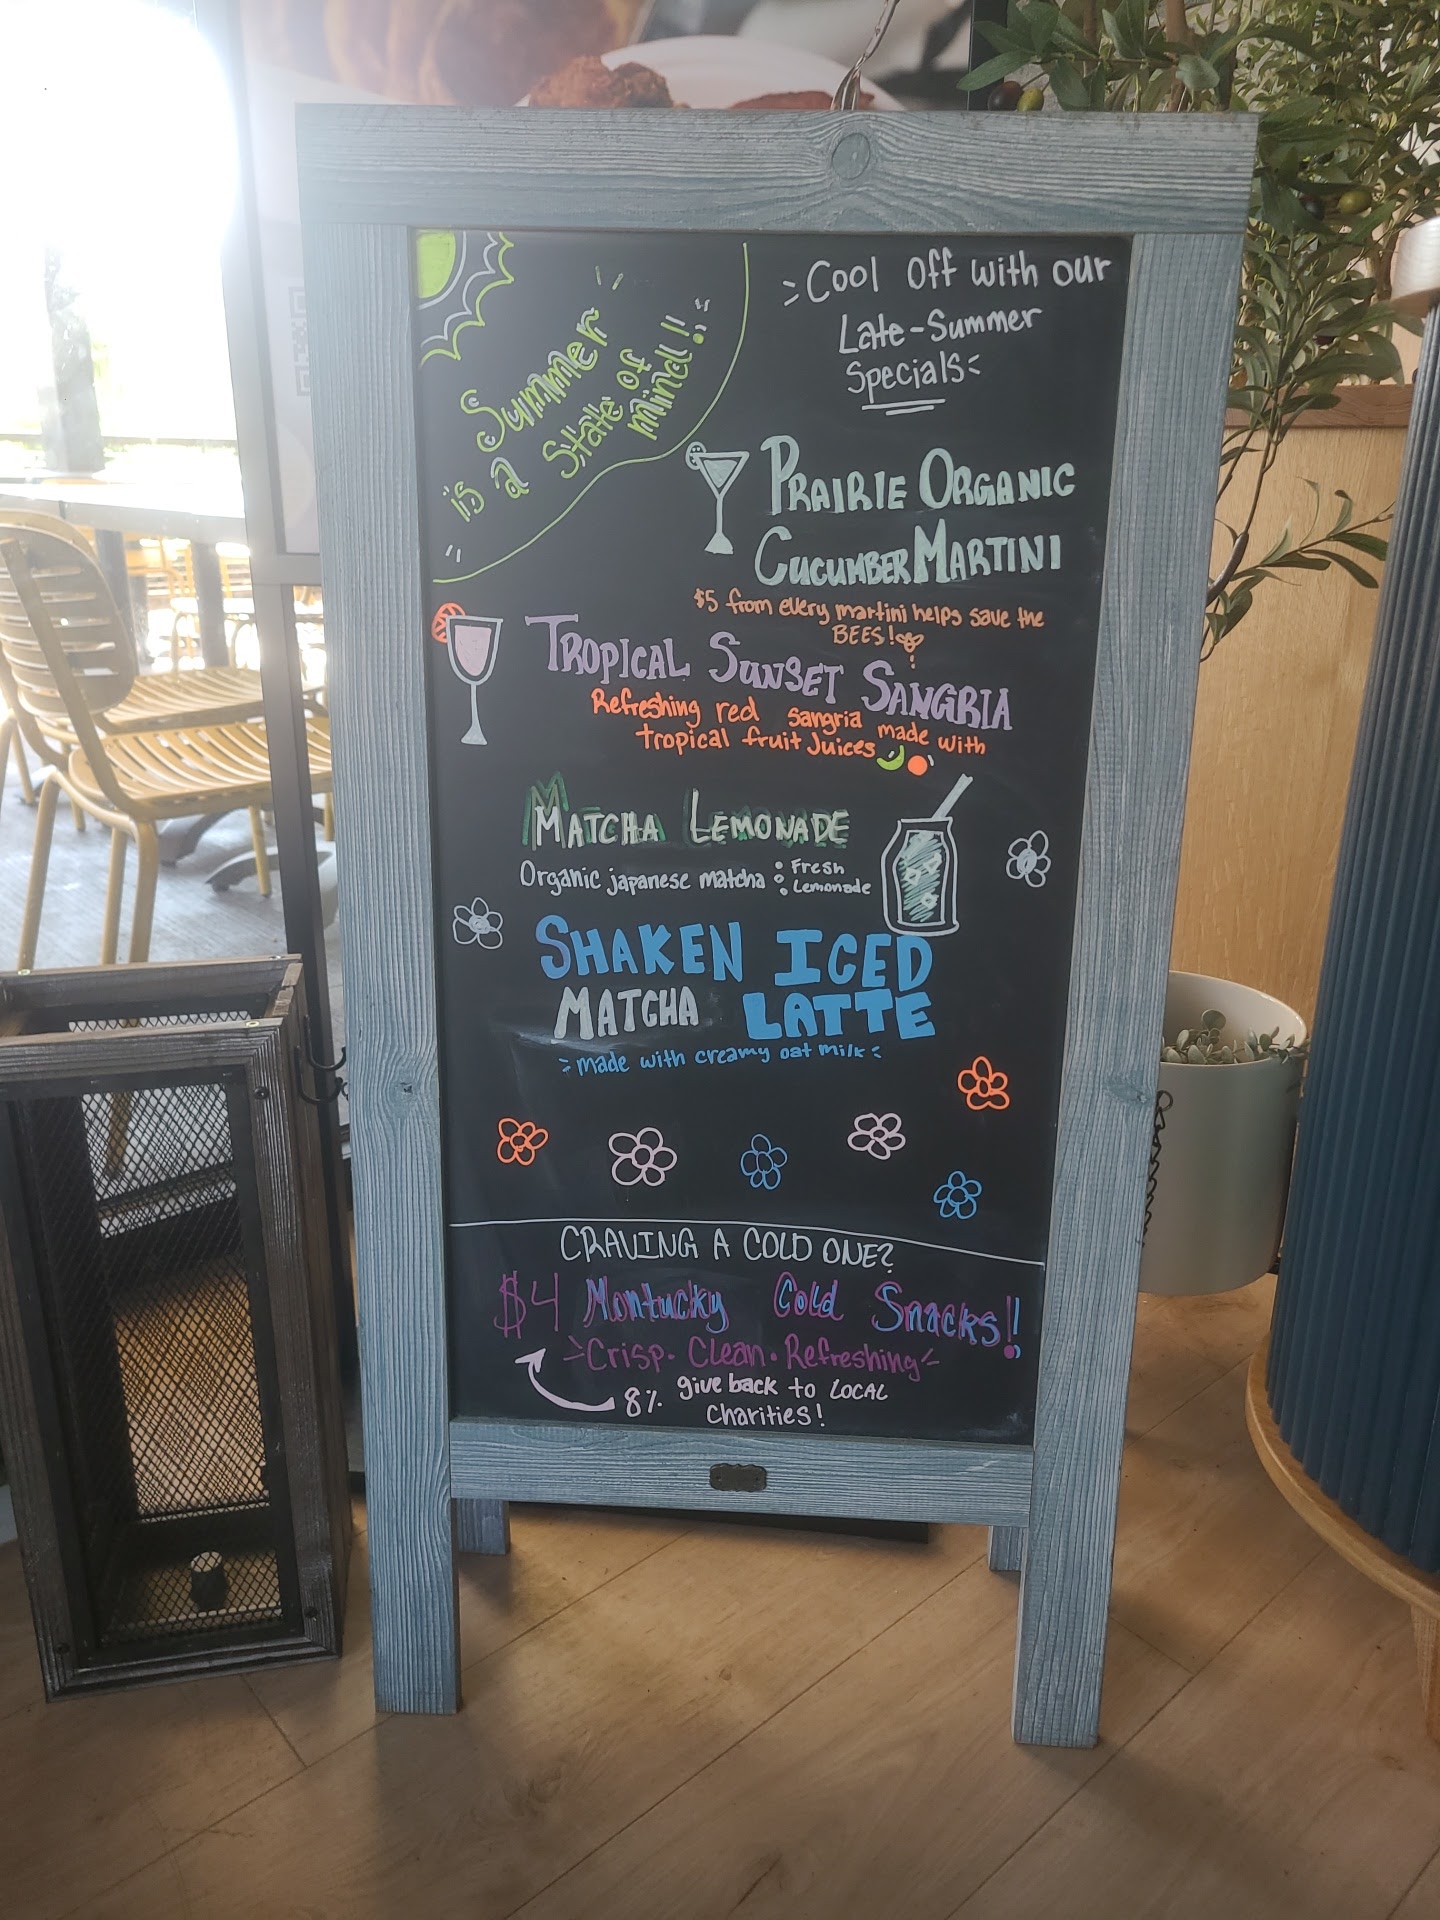 Summer
is a State of
mind!!
Cool Off with our
Late-Summer
Specials
PRAIRIE ORGANIC
CUCUMBER MARTINI
$5 from every martini helps save the
BEES!
TROPICAL SUNSET SANGRIA
Refreshing red sangria made with
tropical fruit Juices
MATCHA LEMONADE
Organic japanese matcha Fresh
Lemonade
SHAKEN ICED
MATCHA LATTE
made with creamy oat milk
CRAVING A COLD ONE?
$4 Montucky Cold Snacks!!
Crisp • Clean • Refreshing
8% give back to LOCAL
Charities!